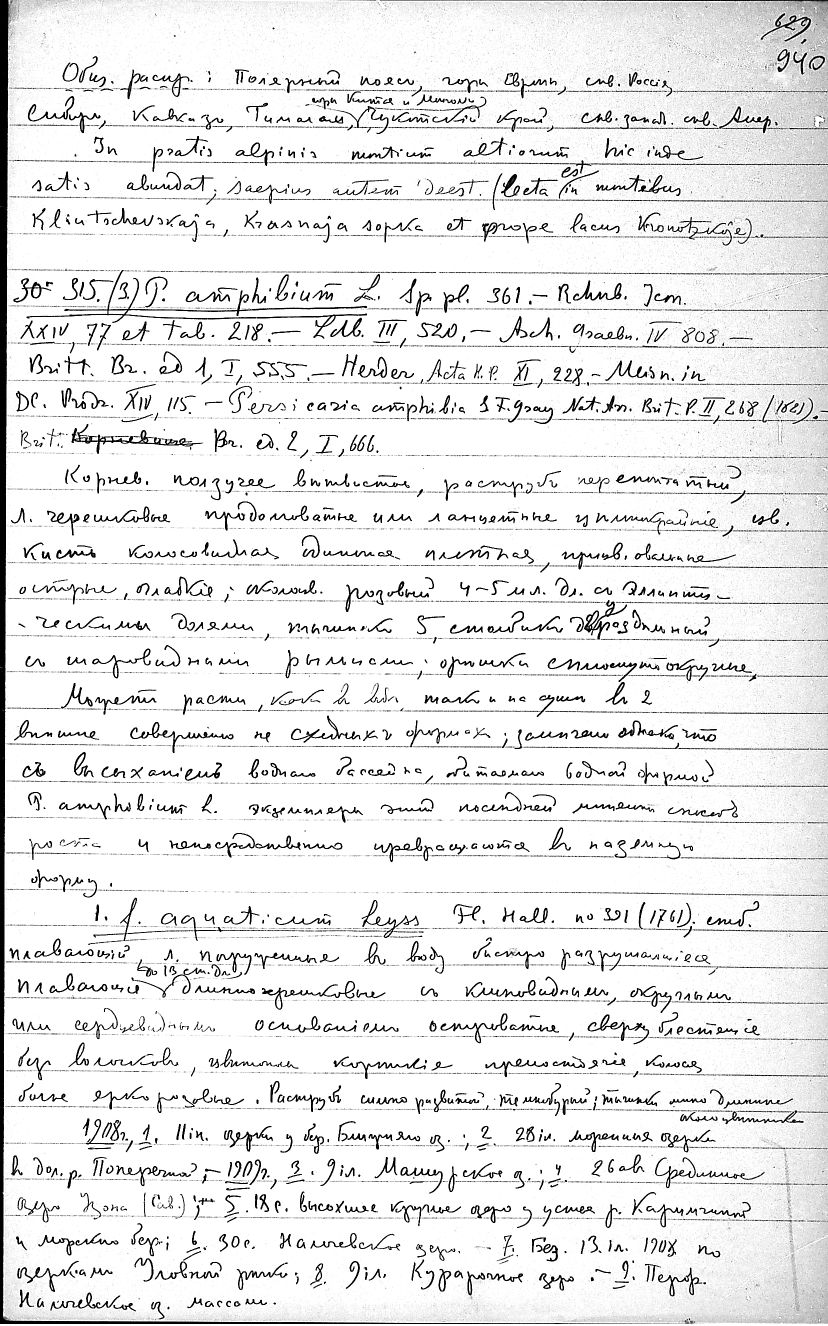 629
940
Общ. распр.: Полярный поясъ, горы Европы, сѣв. Россія,
горы Китая и Монголіи
Сибирь, Кавказъ, Гималаи, Чукотскій край, сѣв. запад. сѣв. Амер.
In pratis alpinis montium altiorum hic inde
satis abundat; saepius autem deest. (Lecta est in montibus
Kliutschevskaja, Krasnaja sopka et prope lacus Kronotzkoje).
30 315. (3) P. amphibium L. Sp. pl. 361. — Rchnb. Icon.
XXIV, 77 et tab. 218. — Ldb. III, 520. — Asch. Graebn. IV 808. —
Britt. Br. ed 1, I, 555. — Herder, Acta H.P. XI, 228. — Meisn. in
DC. Prodr. XIV, 115. — Persicaria amphibia S F. Gray Nat. Arr. Brit. P. II, 268 (1821). —
Brit. Br. ed. 2, I, 666.
Корнев. ползучее вѣтвистое, раструбъ перепончатый,
л. черешковые продолговатые или ланцетные цѣльнокрайніе, цв.
кисть колосовидная одиночная плотная, прицв. овальные
острые, гладкіе; околоцв. розовый 4–5 мл. дл. съ эллипти-
ческими долями, тычинокъ 5, столбикъ двураздѣльный,
съ шаровидными рыльцами; орѣшки сплюснуто округлые.
Можетъ расти, какъ въ водѣ, такъ и на сушѣ въ 2
внѣшне совершенно не сходныхъ формахъ; замѣчено однако, что
съ высыханіемъ воднаго бассейна, обитаемаго водной формой
P. amphibium L. экземпляры этой послѣдней мѣняютъ способъ
роста и непосредственно превращаются въ наземную
форму.
1. f. aquaticum Leyss Fl. Hall. no 391 (1761); стеб.
плавающій, л. погруженные въ воду быстро разрушающіеся,
до 13 ст. дл.
плавающіе длинночерешковые съ клиновиднымъ, округлымъ
или сердцевиднымъ основаніемъ островатые, сверху блестящіе
безъ волосковъ, цвѣтоносы короткіе прямостоячіе, колосъ
болѣе ярко розовые. Раструбъ сильно развитой, темнобурый; тычинки длиннѣе
околоцвѣтника
1908 г., 1. 11 іюн. озерки у бер. Ближняго оз.; 2. 28 іл. моренныя озерки
въ дол. р. Поперечной; — 1909 г., 3. 9 іл. Машурское оз.; 4. 26 ав. Срединное
озеро Узона (Сав.); — 5. 18 с. высохшее круглое озеро у устья р. Каримчиной
и морскимъ бер.; 6. 30 с. Налычевское озеро. — 7. Без. 13 іл. 1908 по
озеркамъ Уловной рѣки; 8. 9 іл. Курарочное озеро. — 9. Перфор.
Налычевское оз. массами.